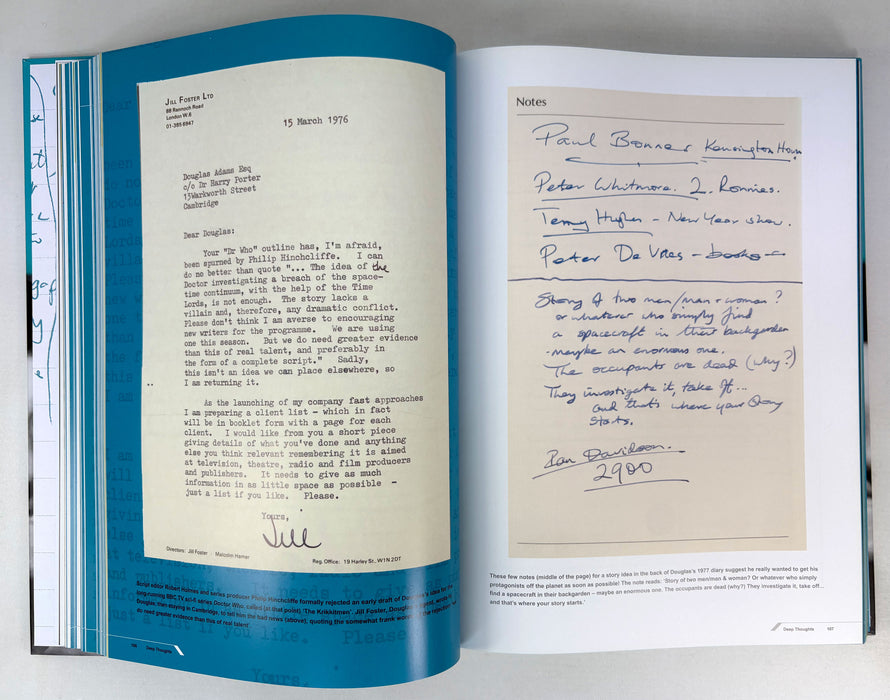 JILL FOSTER LTD
88 Rannoch Road
London W.6
01-385 6947
15 March 1976
Douglas Adams Esq
c/o Dr Harry Porter
13Warkworth Street
Cambridge
Dear Douglas:
Your "Dr Who" outline has, I'm afraid,
been spurned by Philip Hinchcliffe. I can
do no better than quote "... The idea of the
Doctor investigating a breach of the space-
time continuum, with the help of the Time
Lords, is not enough. The story lacks a
villain and, therefore, any dramatic conflict.
Please don't think I am averse to encouraging
new writers for the programme. We are using
one this season. But we do need greater evidence
than this of real talent, and preferably in
the form of a complete script." Sadly,
this isn't an idea we can place elsewhere, so
I am returning it.
As the launching of my company fast approaches
I am preparing a client list - which in fact
will be in booklet form with a page for each
client. I would like from you a short piece
giving details of what you've done and anything
else you think relevant remembering it is aimed
at television, theatre, radio and film producers
and publishers. It needs to give as much
information in as little space as possible -
just a list if you like. Please.
Yours,
Jill
Directors: Jill Foster Malcolm Hamer
Reg. Office: 19 Harley St., W1N 2DT
Script editor Robert Holmes and series producer Philip Hinchcliffe formally rejected an early draft of Douglas's idea for the
long-running BBC TV sci-fi series Doctor Who, called (at that point) 'The Krikkitmen'. Jill Foster, Douglas's agent, wrote to
Douglas, then staying in Cambridge, to tell him the bad news (above), quoting the somewhat frank words of the rejection: 'we
do need greater evidence than this of real talent'.
106 Deep Thoughts
Notes
Paul Bonner Kensington House
Peter Whitmore. 2 Ronnies.
Terry Hughes - New Year show.
Peter De Vries - books -
Story of two men/man + woman?
or whatever who simply find
a spacecraft in their backgarden
- maybe an enormous one.
The occupants are dead (why?)
They investigate it, take off...
and that's where your story
starts.
Ian Davidson.
2900
These few notes (middle of the page) for a story idea in the back of Douglas's 1977 diary suggest he really wanted to get his
protagonists off the planet as soon as possible! The note reads: 'Story of two men/man & woman? Or whatever who simply
find a spacecraft in their backgarden – maybe an enormous one. The occupants are dead (why?) They investigate it, take off...
and that's where your story starts.'
Deep Thoughts 107